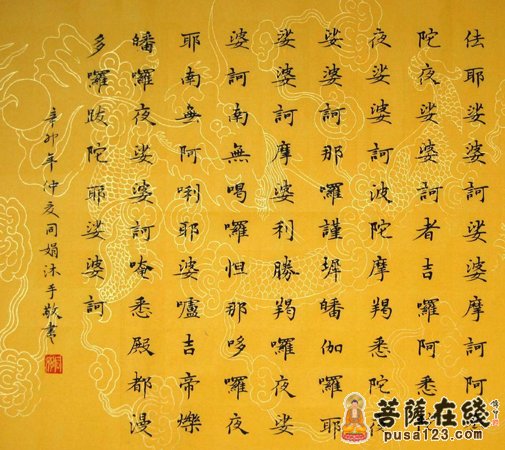 佉耶娑婆訶娑婆摩訶阿
陀夜娑婆訶者吉囉阿悉
夜娑婆訶波陀摩羯悉陀夜
娑婆訶那囉謹墀皤伽囉耶
娑婆訶摩婆利勝羯囉夜娑
婆訶南無喝囉怛那哆囉夜
耶南無阿唎耶婆嚧吉帝爍
皤囉夜娑婆訶唵悉殿都漫
多囉跋陀耶娑婆訶
辛卯年仲夏同娟沐手敬書
菩薩在綫
pusa123.com